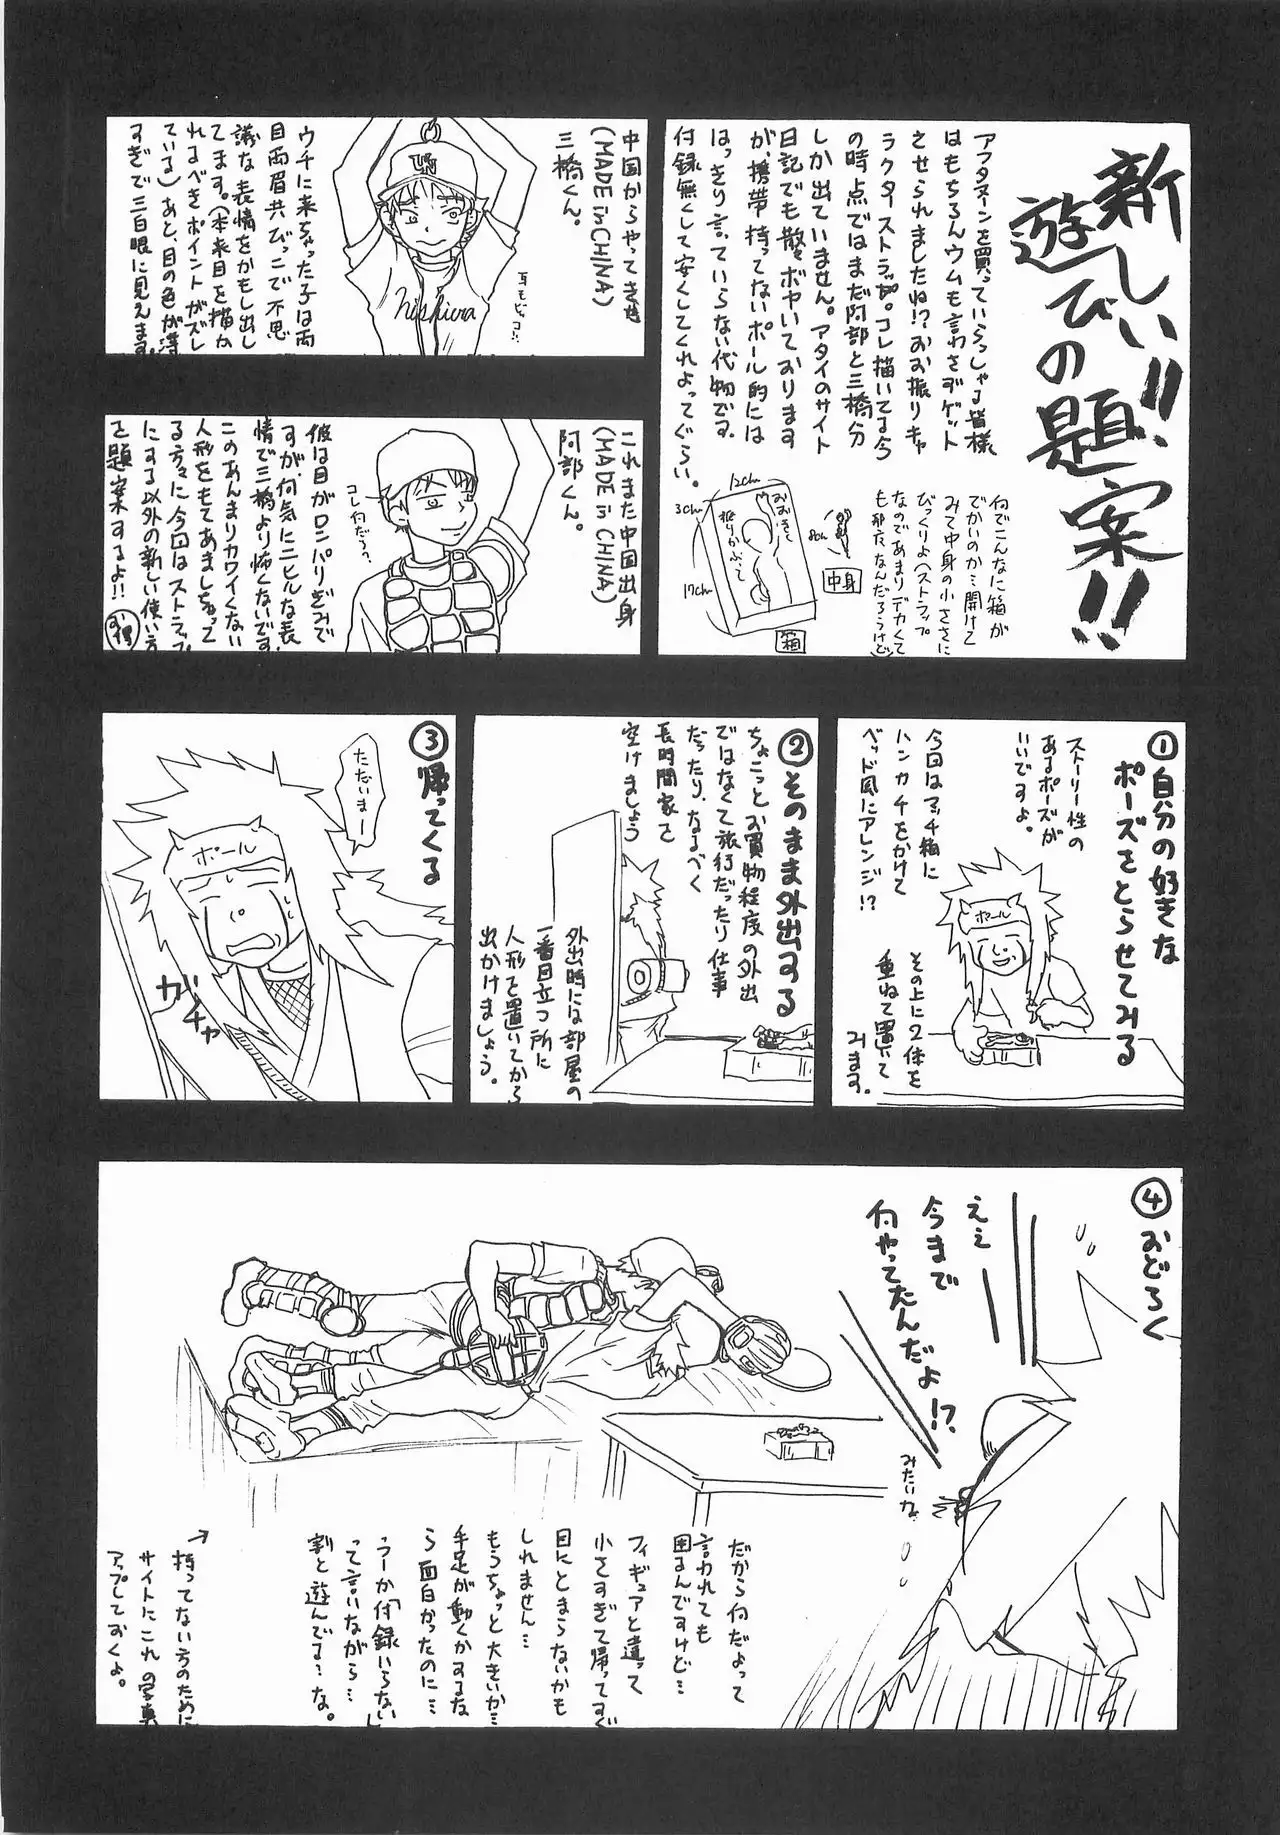 新しい!!
遊びの題案!!
アフタヌーンを買っていらっしゃる皆様
はもちろんウムも言わさずゲット
させられましたね!?おお振りキャ
ラクタストラップ。コレ描いてる今
の時点ではまだ阿部と三橋分
しか出ていません。アタイのサイト
日記でも散々ボヤいております
が、携帯持ってないポール的には
はっきり言っていらない代物です。
付録無くして安くしてくれよってぐらい。
何でこんなに箱が
でかいのか…開けて
みて中身の小ささに
びっくりよ(ストラップ
なのであまりデカくて
も邪魔なんだろうけど)
12cm
3cm
17cm
おおきく
振りかぶって
箱
8cm
中身
中国からやってきた
(MADE in CHINA)
三橋くん。
Nishiura
耳もビッコ!!
ウチに来ちゃった子は両
目両眉共びっこで不思
議な表情をかもし出し
てます。(本来目を描か
れるべきポイントがズレ
ている)あと、目の色が薄
すぎで三白眼に見えます。
これまた中国出身
(MADE in CHINA)
阿部くん。
コレ何だろう?
彼は目がロンパリぎみで
すが、何気にニヒルな表
情で三橋より怖くないです
このあんまりカワイくない
人形をもてあましちゃって
る方々に今回はストラップ
にする以外の新しい使い方
を題案するよ!!
①自分の好きな
ポーズをとらせてみる
ストーリー性の
あるポーズが
いいですよ。
今回はマッチ箱に
ハンカチをかけて
ベッド風にアレンジ!?
その上に2体を
重ねて置いて
みます。
ポール
②そのまま外出する
ちょこっとお買物程度の外出
ではなくて旅行だったり仕事
だったり、なるべく
長時間家を
空けましょう
外出時には部屋の
一番目立つ所に
人形を置いてから
出かけましょう。
③帰ってくる
ただいまー
ポール
ガチャ
④おどろく
ええ――
今まで
何やってたんだよ!?
みたいな
だから何だよって
言われても
困るんですけど…
フィギュアと違って
小さすぎて帰ってすぐ
目にとまらないかも
しれません…
もうちょっと大きいか…
手足が動くかするな
ら面白かったのに…
つーか「付録いらない」
って言いながら…
割と遊んでる?な。
持ってない方のために
サイトにこれの写真
アップしておくよ。